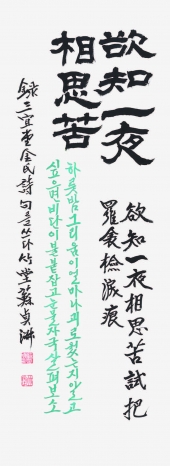 欲知一夜
相思苦
欲知一夜相思苦試把
羅衾檢淚痕
하룻밤그리움이얼마나괴로웠는지알고
싶으면비단이불붙잡고눈물자국살펴보소
錄三宜堂金氏詩句를쓰다